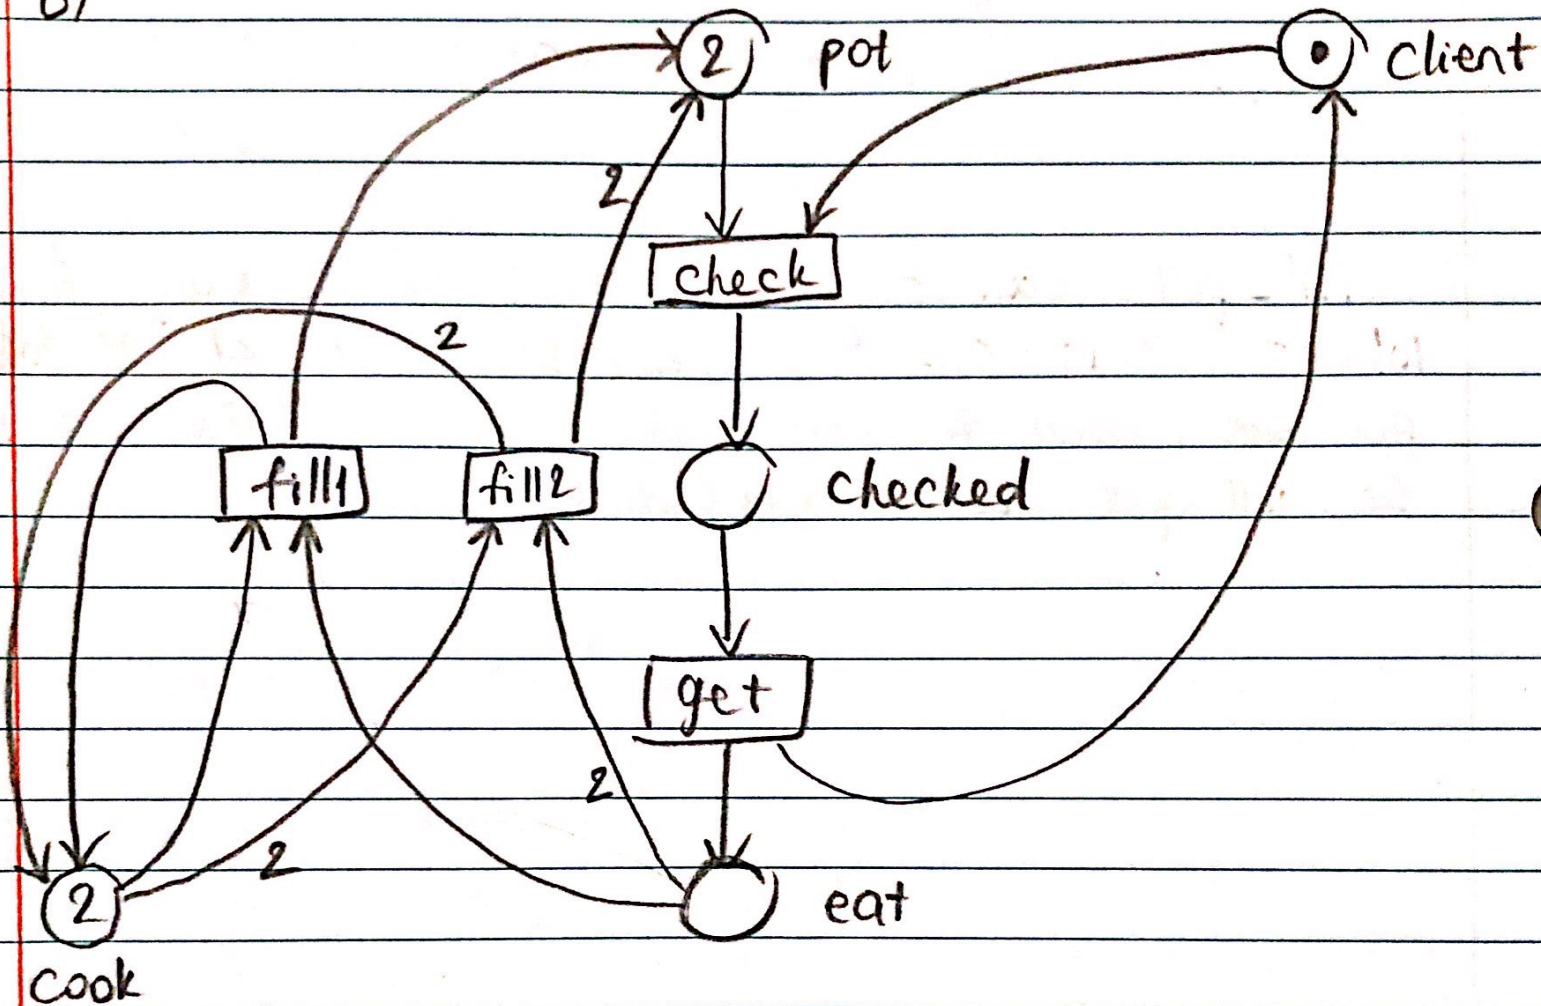 b)
2 pot
client
2
check
2
fill1
fill2
checked
get
2
2
2 eat
cook